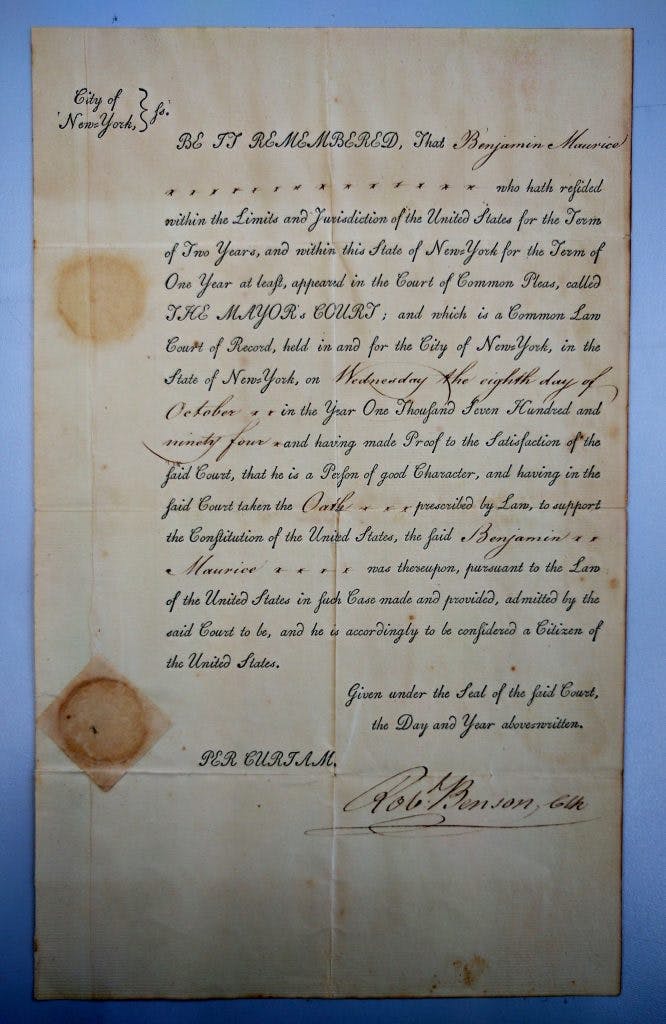 City of
New=York, } ſs.
BE IT REMEMBERED, That Benjamin Maurice
x x x x x x x x x x x x x x x who hath reſided
within the Limits and Jurisdiction of the United States for the Term
of Two Years, and within this State of New=York for the Term of
One Year at leaſt, appeared in the Court of Common Pleas, called
THE MAYOR's COURT; and which is a Common Law
Court of Record, held in and for the City of New=York, in the
State of New=York, on Wednesday the eighth day of
October x x in the Year One Thouſand Seven Hundred and
ninety four x and having made Proof to the Satisfaction of the
ſaid Court, that he is a Perſon of good Character, and having in the
ſaid Court taken the Oath x x x preſcribed by Law, to support
the Conſtitution of the United States, the ſaid Benjamin x x
Maurice x x x x was thereupon, pursuant to the Law
of the United States in ſuch Case made and provided, admitted by the
said Court to be, and he is accordingly to be conſidered a Citizen of
the United States.
Given under the Seal of the ſaid Court,
the Day and Year above=written.
PER CURIAM.
Robt. Benson, Clk